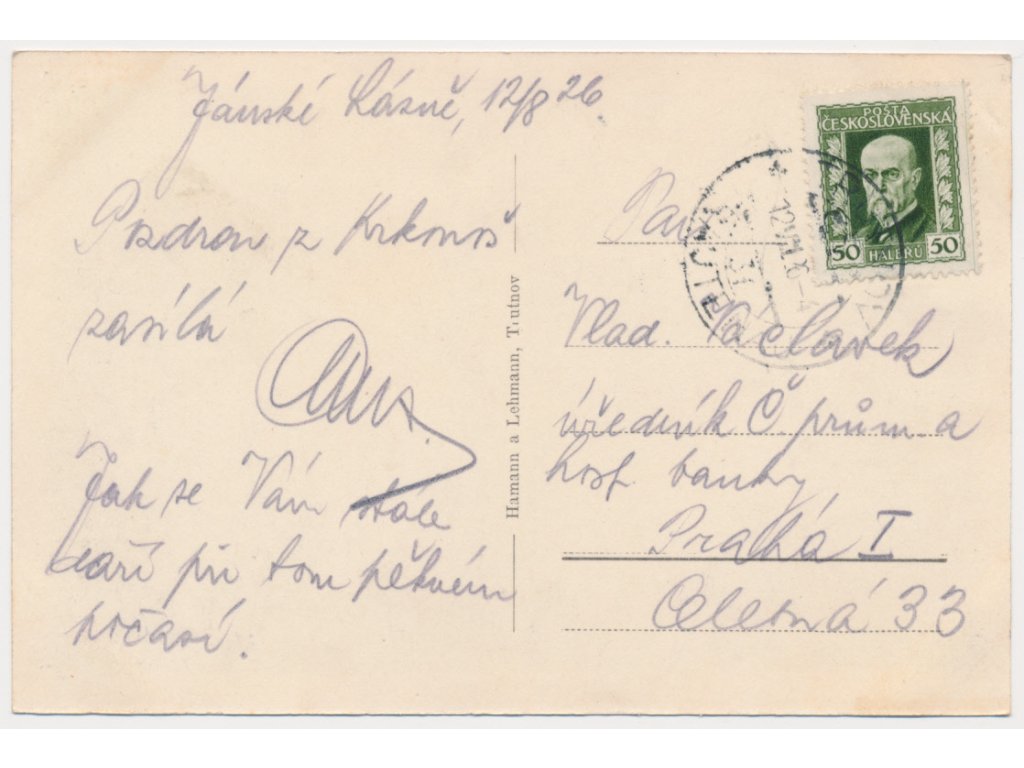 Jánské Lázně, 12/8 26.
Pozdrav z Krkonoš
zasílá
Jak se Vám stále
daří při tom pěkném
počasí.
Hamann a Lehmann, Trutnov
POŠTA
ČESKOSLOVENSKÁ
50 HALÉŘŮ 50
Pan
Vlad. Václavek
úředník Č. prům. a
hosp. banky
Praha I
Celetná 33